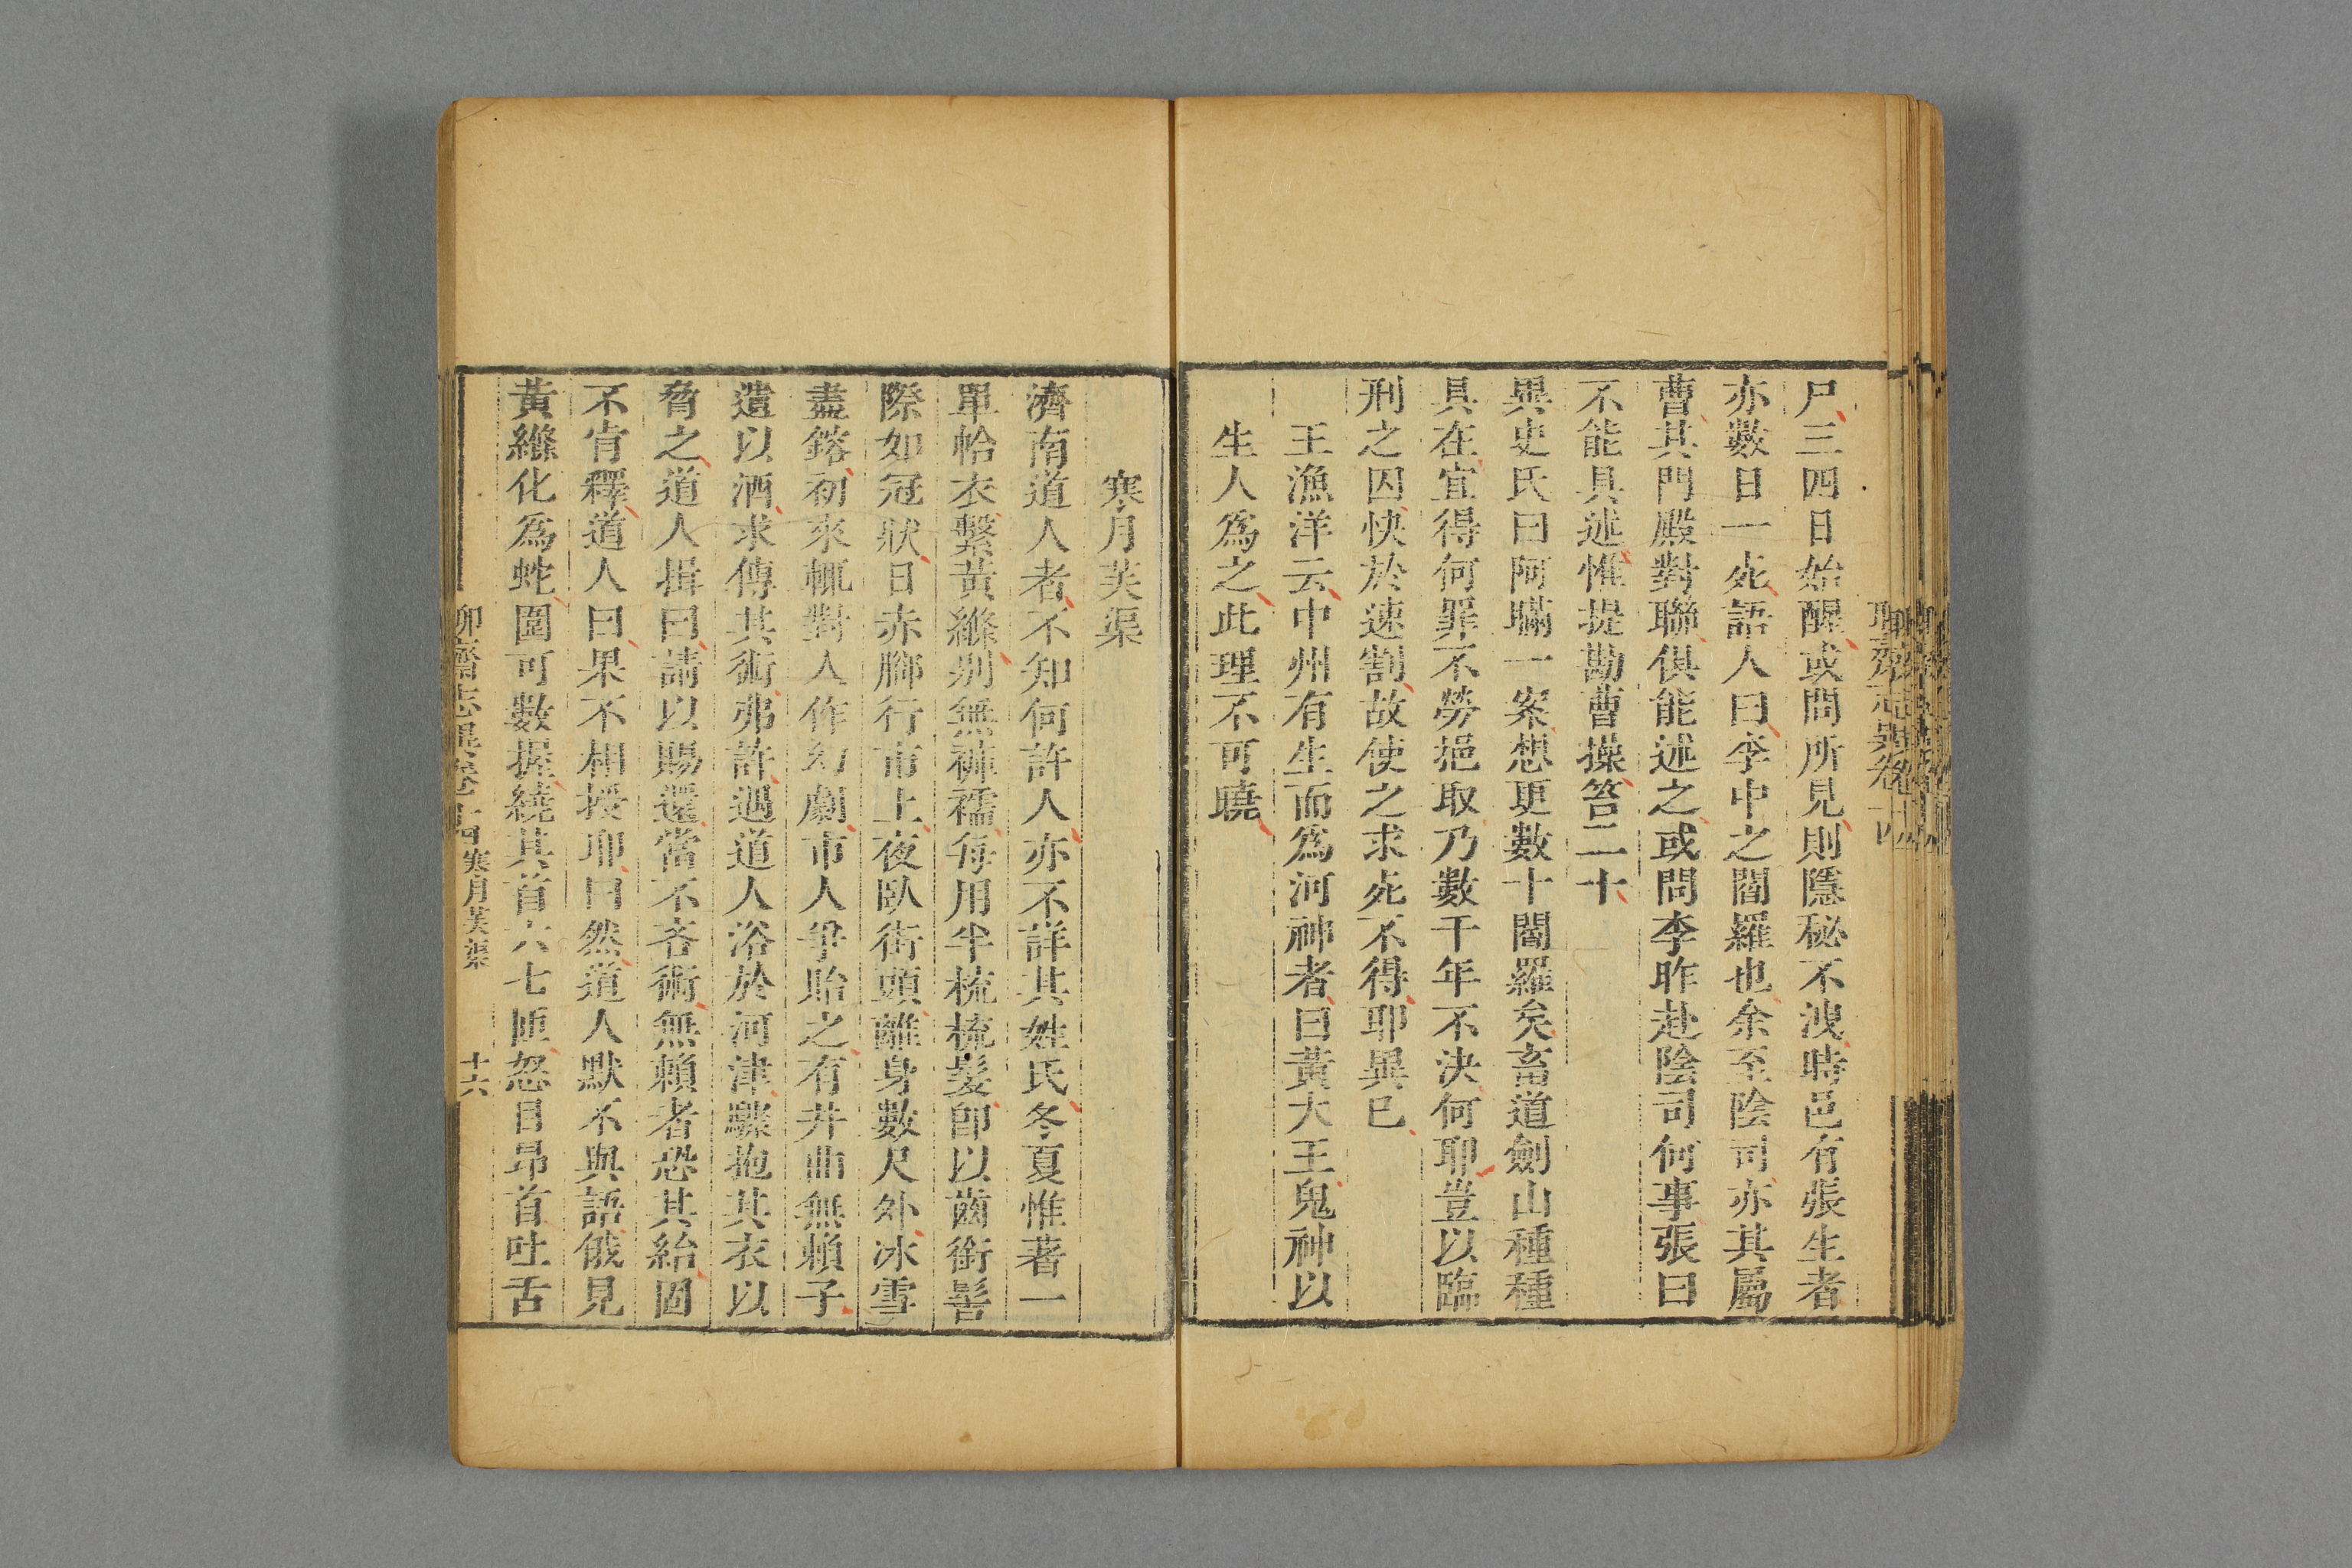 聊齋志異卷十四
尸三四日始醒或問所見則隱秘不洩時邑有張生者
亦數日一死語人曰李中之閻羅也余至陰司亦其屬
曹其門殿對聯俱能述之或問李昨赴陰司何事張曰
不能具述惟提勘曹操笞二十
異史氏曰阿瞞一案想更數十閻羅矣畜道劍山種種
具在宜得何罪不勞挹取乃數千年不決何耶豈以臨
刑之囚快於速割故使之求死不得耶異已
王漁洋云中州有生而為河神者曰黃大王鬼神以
生人為之此理不可曉
寒月芙渠
濟南道人者不知何許人亦不詳其姓氏冬夏惟著一
單帢衣繫黃縧別無褲襦每用半梳梳髮卽以齒銜髻
際如冠狀日赤腳行市上夜臥街頭離身數尺外冰雪
盡鎔初來輒對人作幻劇市人爭貽之有井曲無賴子
遺以酒求傳其術弗許遇道人浴於河津驟抱其衣以
脅之道人揖曰請以賜還當不吝術無賴者恐其紿固
不肯釋道人曰果不相授耶曰然道人默不與語俄見
黃縧化為蛇圍可數握繞其首六七匝怒目昂首吐舌
聊齋志異卷十四 寒月芙渠 十六